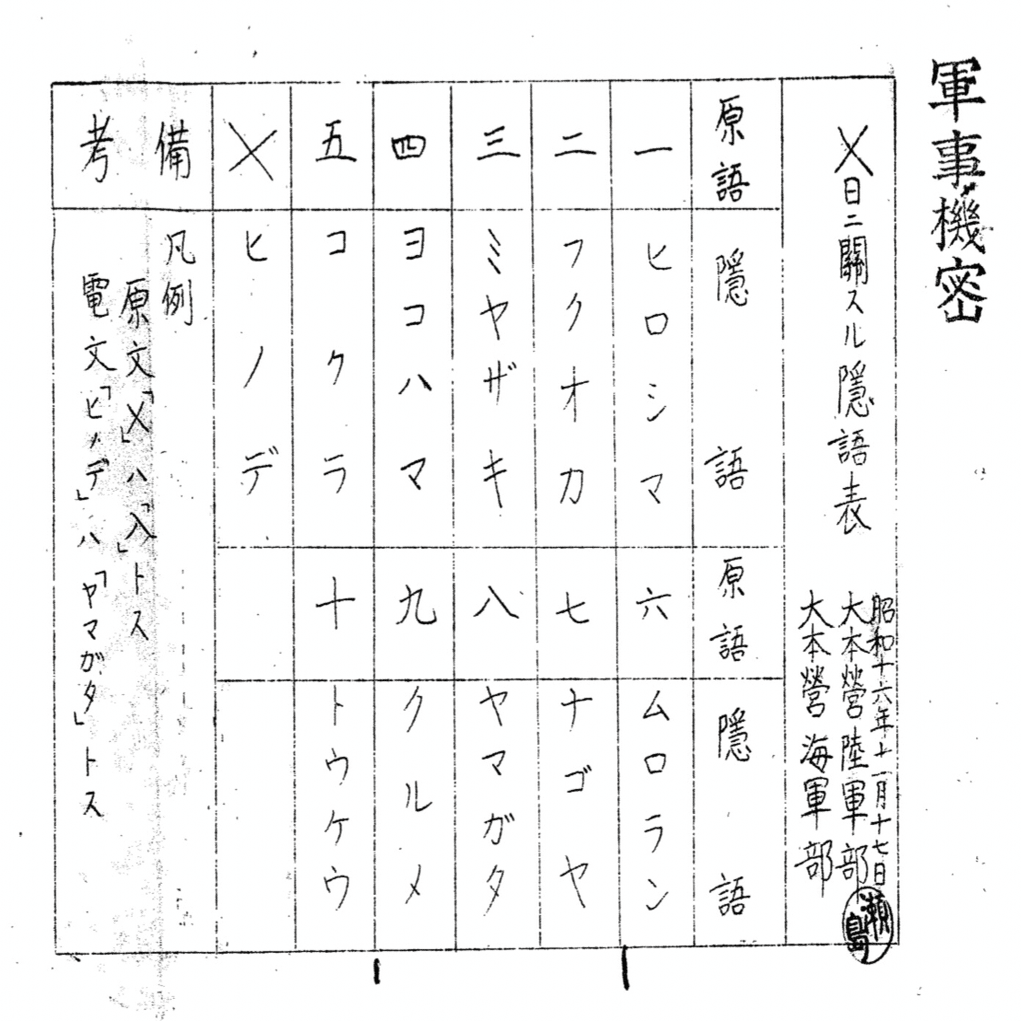 軍事機密
X日ニ關スル隱語表
昭和十六年十一月十七日
大本營陸軍部
大本營海軍部
瀬島
原語 隱語 原語 隱語
一 ヒロシマ 六 ムロラン
二 フクオカ 七 ナゴヤ
三 ミヤザキ 八 ヤマガタ
四 ヨコハマ 九 クルメ
五 コクラ 十 トウケウ
X ヒノデ
備考
凡例
原文「X」ハ「八」トス
電文「ヒノデ」ハ「ヤマガタ」トス